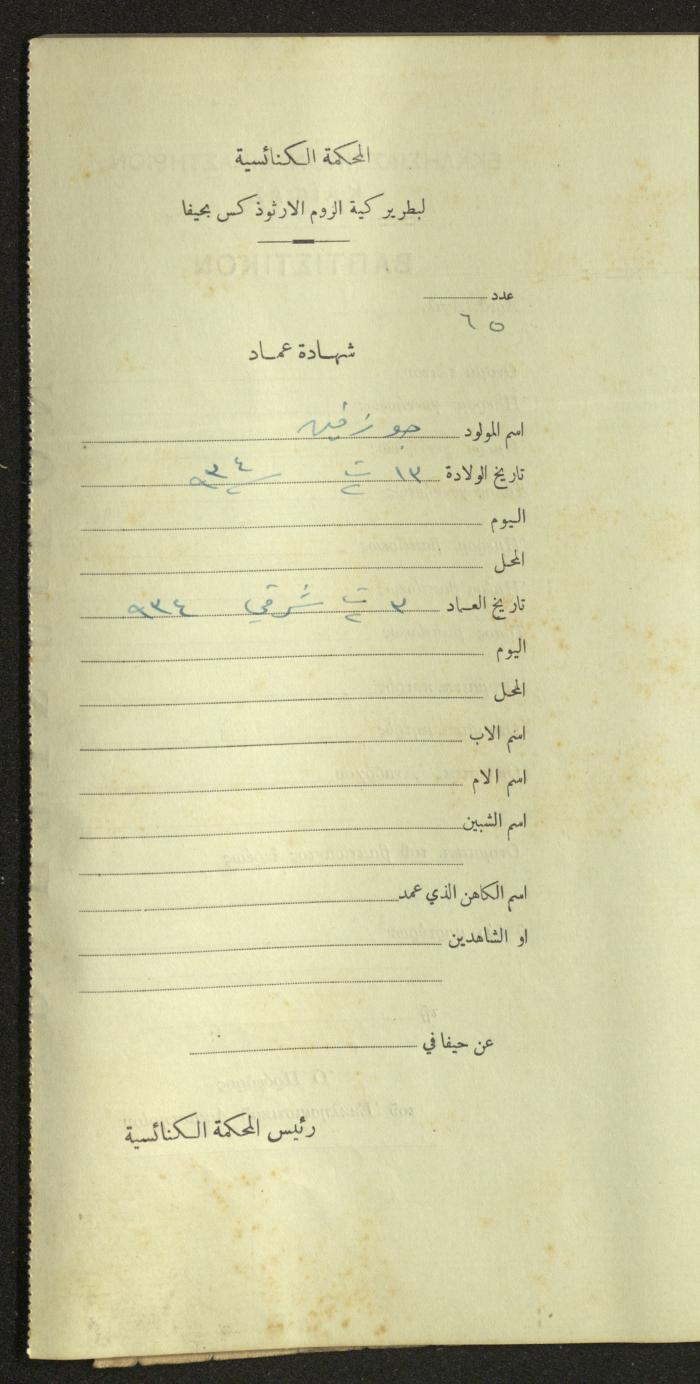 المحكمة الكنائسية
لبطريركية الروم الارثوذكس بحيفا
عدد
٦٥
شهادة عماد
اسم المولود جوزفين
تاريخ الولادة ١٣ ت٢ سنة ٩٣٤
اليوم
المحل
تاريخ العماد ٣ ت٢ شرقي ٩٣٤
اليوم
المحل
اسم الاب
اسم الام
اسم الشبين
اسم الكاهن الذي عمد
او الشاهدين
عن حيفا في
رئيس المحكمة الكنائسية